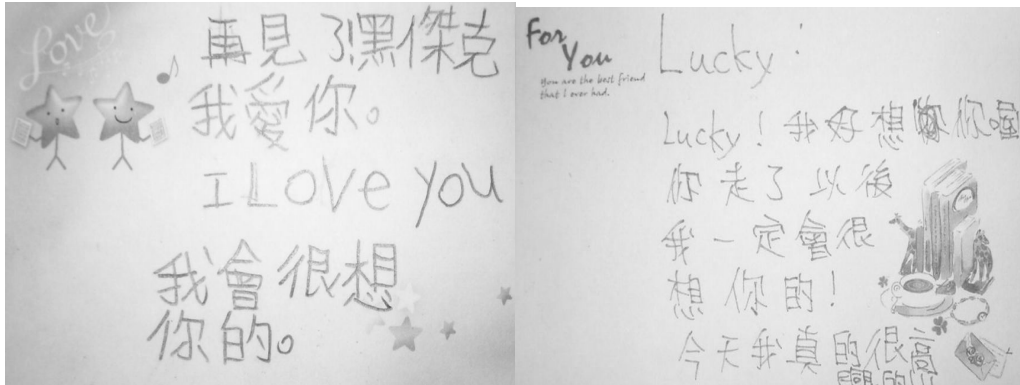 Love
再見了!黑傑克
我愛你。
I Love you
我會很想
你的。
For
You
You are the best friend
that I ever had.
Lucky:
Lucky!我好想你喔
你走了以後
我一定會很
想你的!
今天我真的很高